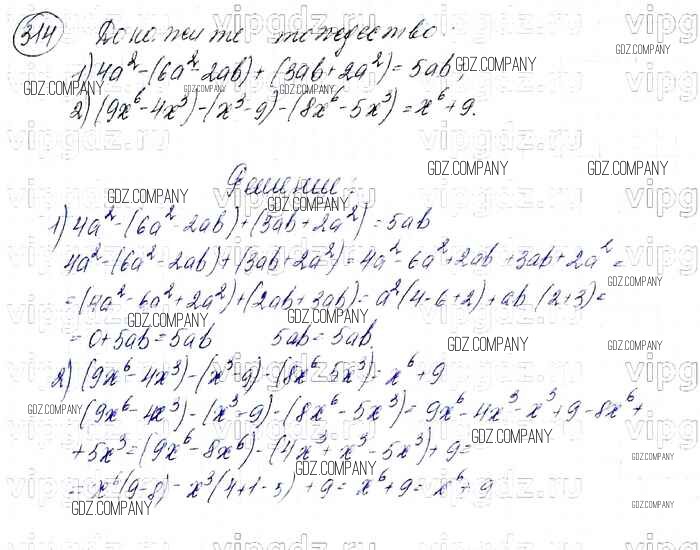 314 Докажите тождество:
1) 4a² - (6a² - 2ab) + (3ab + 2a²) = 5ab;
2) (9x⁶ - 4x³) - (x³ - 9) - (8x⁶ - 5x³) = x⁶ + 9.
Решение:
1) 4a² - (6a² - 2ab) + (3ab + 2a²) = 5ab
4a² - (6a² - 2ab) + (3ab + 2a²) = 4a² - 6a² + 2ab + 3ab + 2a² =
= (4a² - 6a² + 2a²) + (2ab + 3ab) = a² (4 - 6 + 2) + ab (2 + 3) =
= 0 + 5ab = 5ab 5ab = 5ab
2) (9x⁶ - 4x³) - (x³ - 9) - (8x⁶ - 5x³) = x⁶ + 9
(9x⁶ - 4x³) - (x³ - 9) - (8x⁶ - 5x³) = 9x⁶ - 4x³ - x³ + 9 - 8x⁶ +
+ 5x³ = (9x⁶ - 8x⁶) - (4x³ + x³ - 5x³) + 9 =
= x⁶ (9 - 8) - x³ (4 + 1 - 5) + 9 = x⁶ + 9 = x⁶ + 9
GDZ.COMPANY
vipgdz.ru